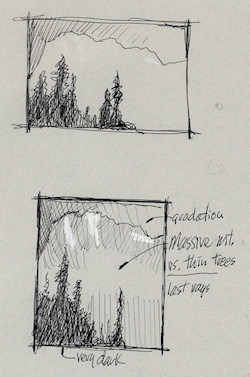 gradation
Massive mt.
vs. thin trees
last rays
very dark